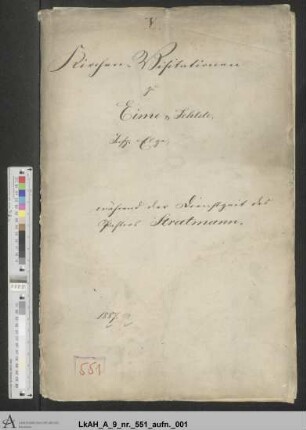 Kirchen-Visitationen
zu
Eime
während der Dienstzeit des
Pastors Stratmann.
1887
551
LkAH_A_9_nr._551_aufn._001